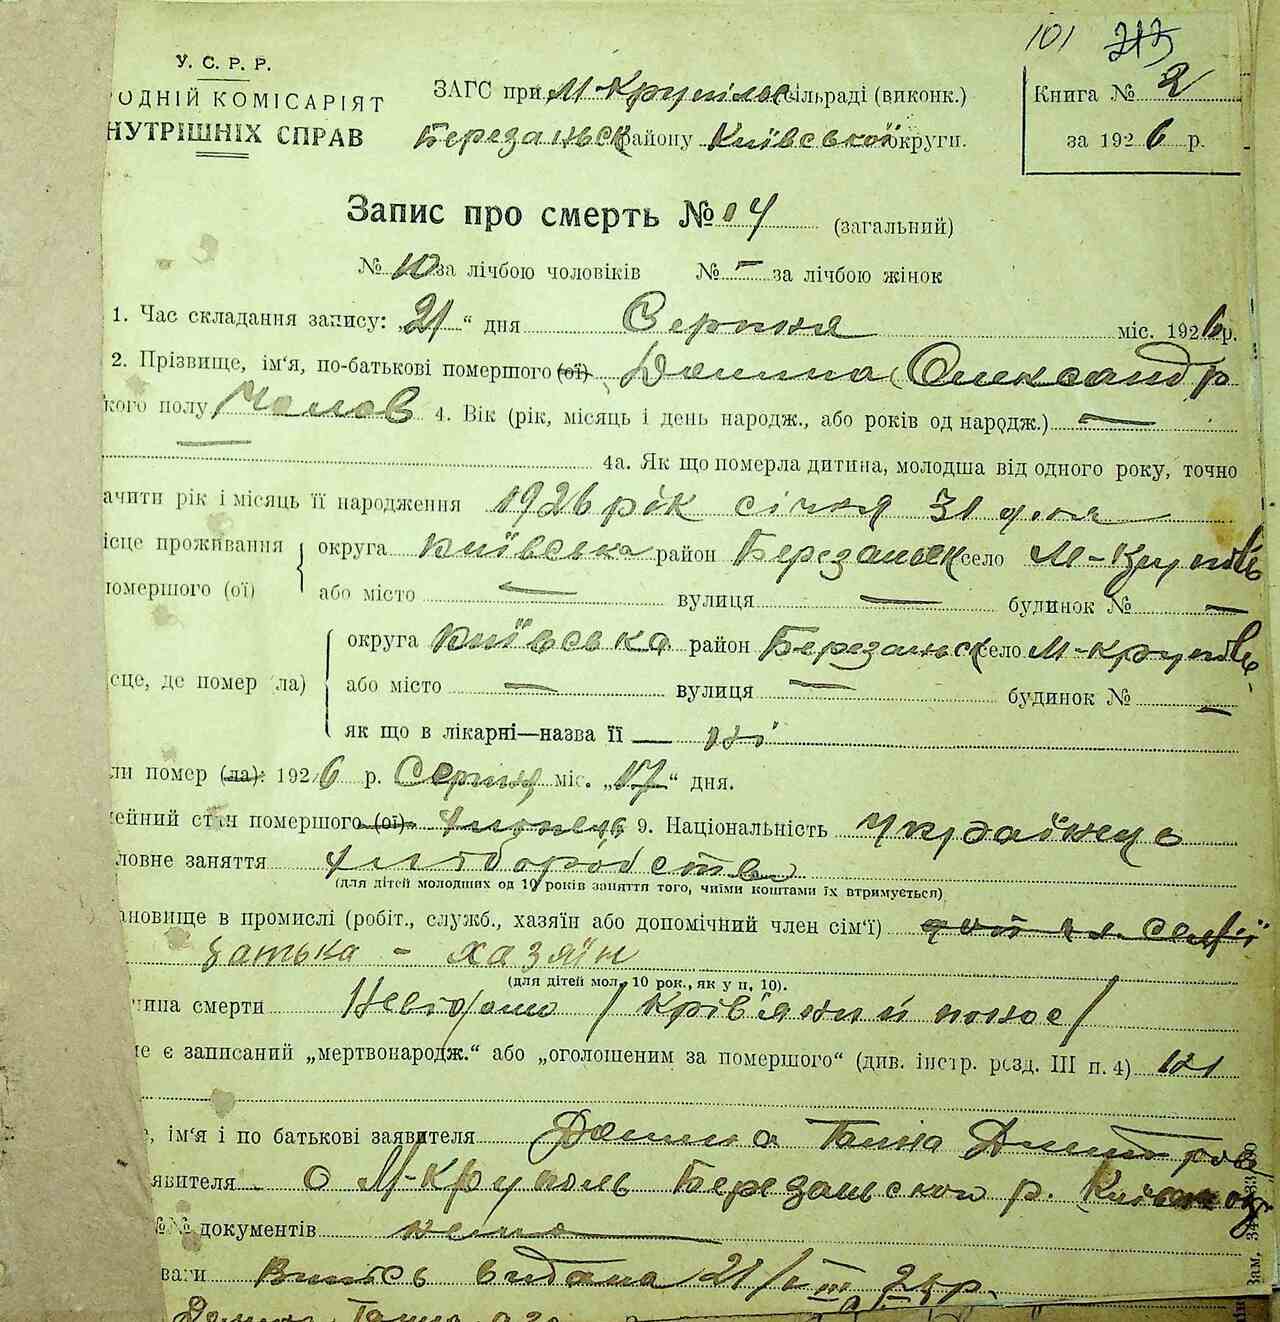 101 315
У. С. Р. Р.
ОДНІЙ КОМІСАРІЯТ
НУТРІШНІХ СПРАВ
ЗАГС при М-Крупільс сільраді (виконк.)
Березаньськ району Київської округи.
Книга № 2
за 1926 р.
Запис про смерть № 14 (загальний)
№ 10 за лічбою чоловіків № – за лічбою жінок
1. Час складання запису: „21“ дня Серпня міс. 1926 р.
2. Прізвище, ім'я, по-батькові помершого (ої) Олександр
кого полу Чолов 4. Вік (рік, місяць і день народж., або років од народж.) —
4а. Як що померла дитина, молодша від одного року, точно
ачити рік і місяць її народження 1926 рік січня 31 дня
ісце проживання округа Київська район Березаньськ село М-Крупіль
помершого (ої) або місто — вулиця — будинок № —
округа Київська район Березаньськ село М-Крупіль
сце, де помер (ла) або місто — вулиця — будинок № —
як що в лікарні—назва її — ні
ли помер (ла): 1926 р. Серпня міс. „17“ дня.
ейний стан помершого (ої) 9. Національність Українець
ловне заняття хліборобство
(для дітей молодших од 10 років заняття того, чиїми коштами їх втримується)
ановище в промислі (робіт., служб., хазяїн або допомічний член сім'ї)
батька - хазяїн
(для дітей мол. 10 рок., як у п. 10).
чина смерти Невідомо / Крів'яний понос /
не є записаний „мертвонародж.“ або „оголошеним за помершого“ (див. інстр. розд. III п. 4) ні
, ім'я і по батькові заявителя Ганна Дмитрова
явителя С М-Круполь Березанськой р. Київськой
№№ документів нема
ваги Випись видана 21/VIII 26 р.
Ганна